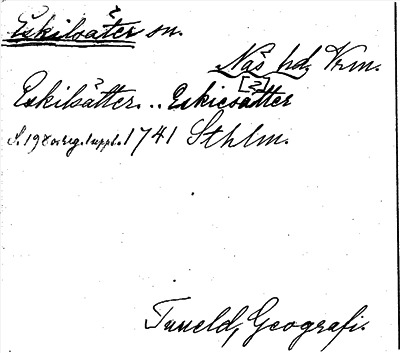 Eskilsäter sn.
Näs hd, Vrm.
Eskilsätter.. Eskiesätter [?]
S. 198 1 uppl. 1741 Sthlm.
Tuneld, Geografi.